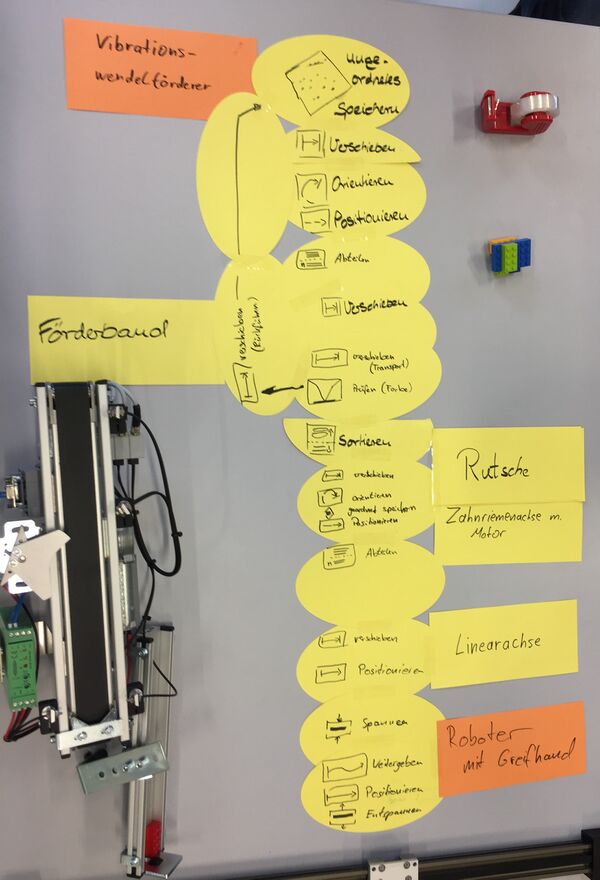 Vibrations-
wendelförderer
Unge-
ordnetes
Speichern
Verschieben
Orientieren
Positionieren
Abteilen
Verschieben
verschieben
(Rückführen)
Förderband
verschieben
(Transport)
Prüfen (Farbe)
Sortieren
Rutsche
verschieben
orientieren
geordnet speichern
Positionieren
Zahnriemenachse m.
Motor
Abteilen
n
verschieben
Positionieren
Linearachse
Spannen
Weitergeben
Positionieren
Entspannen
Roboter
mit Greifhand